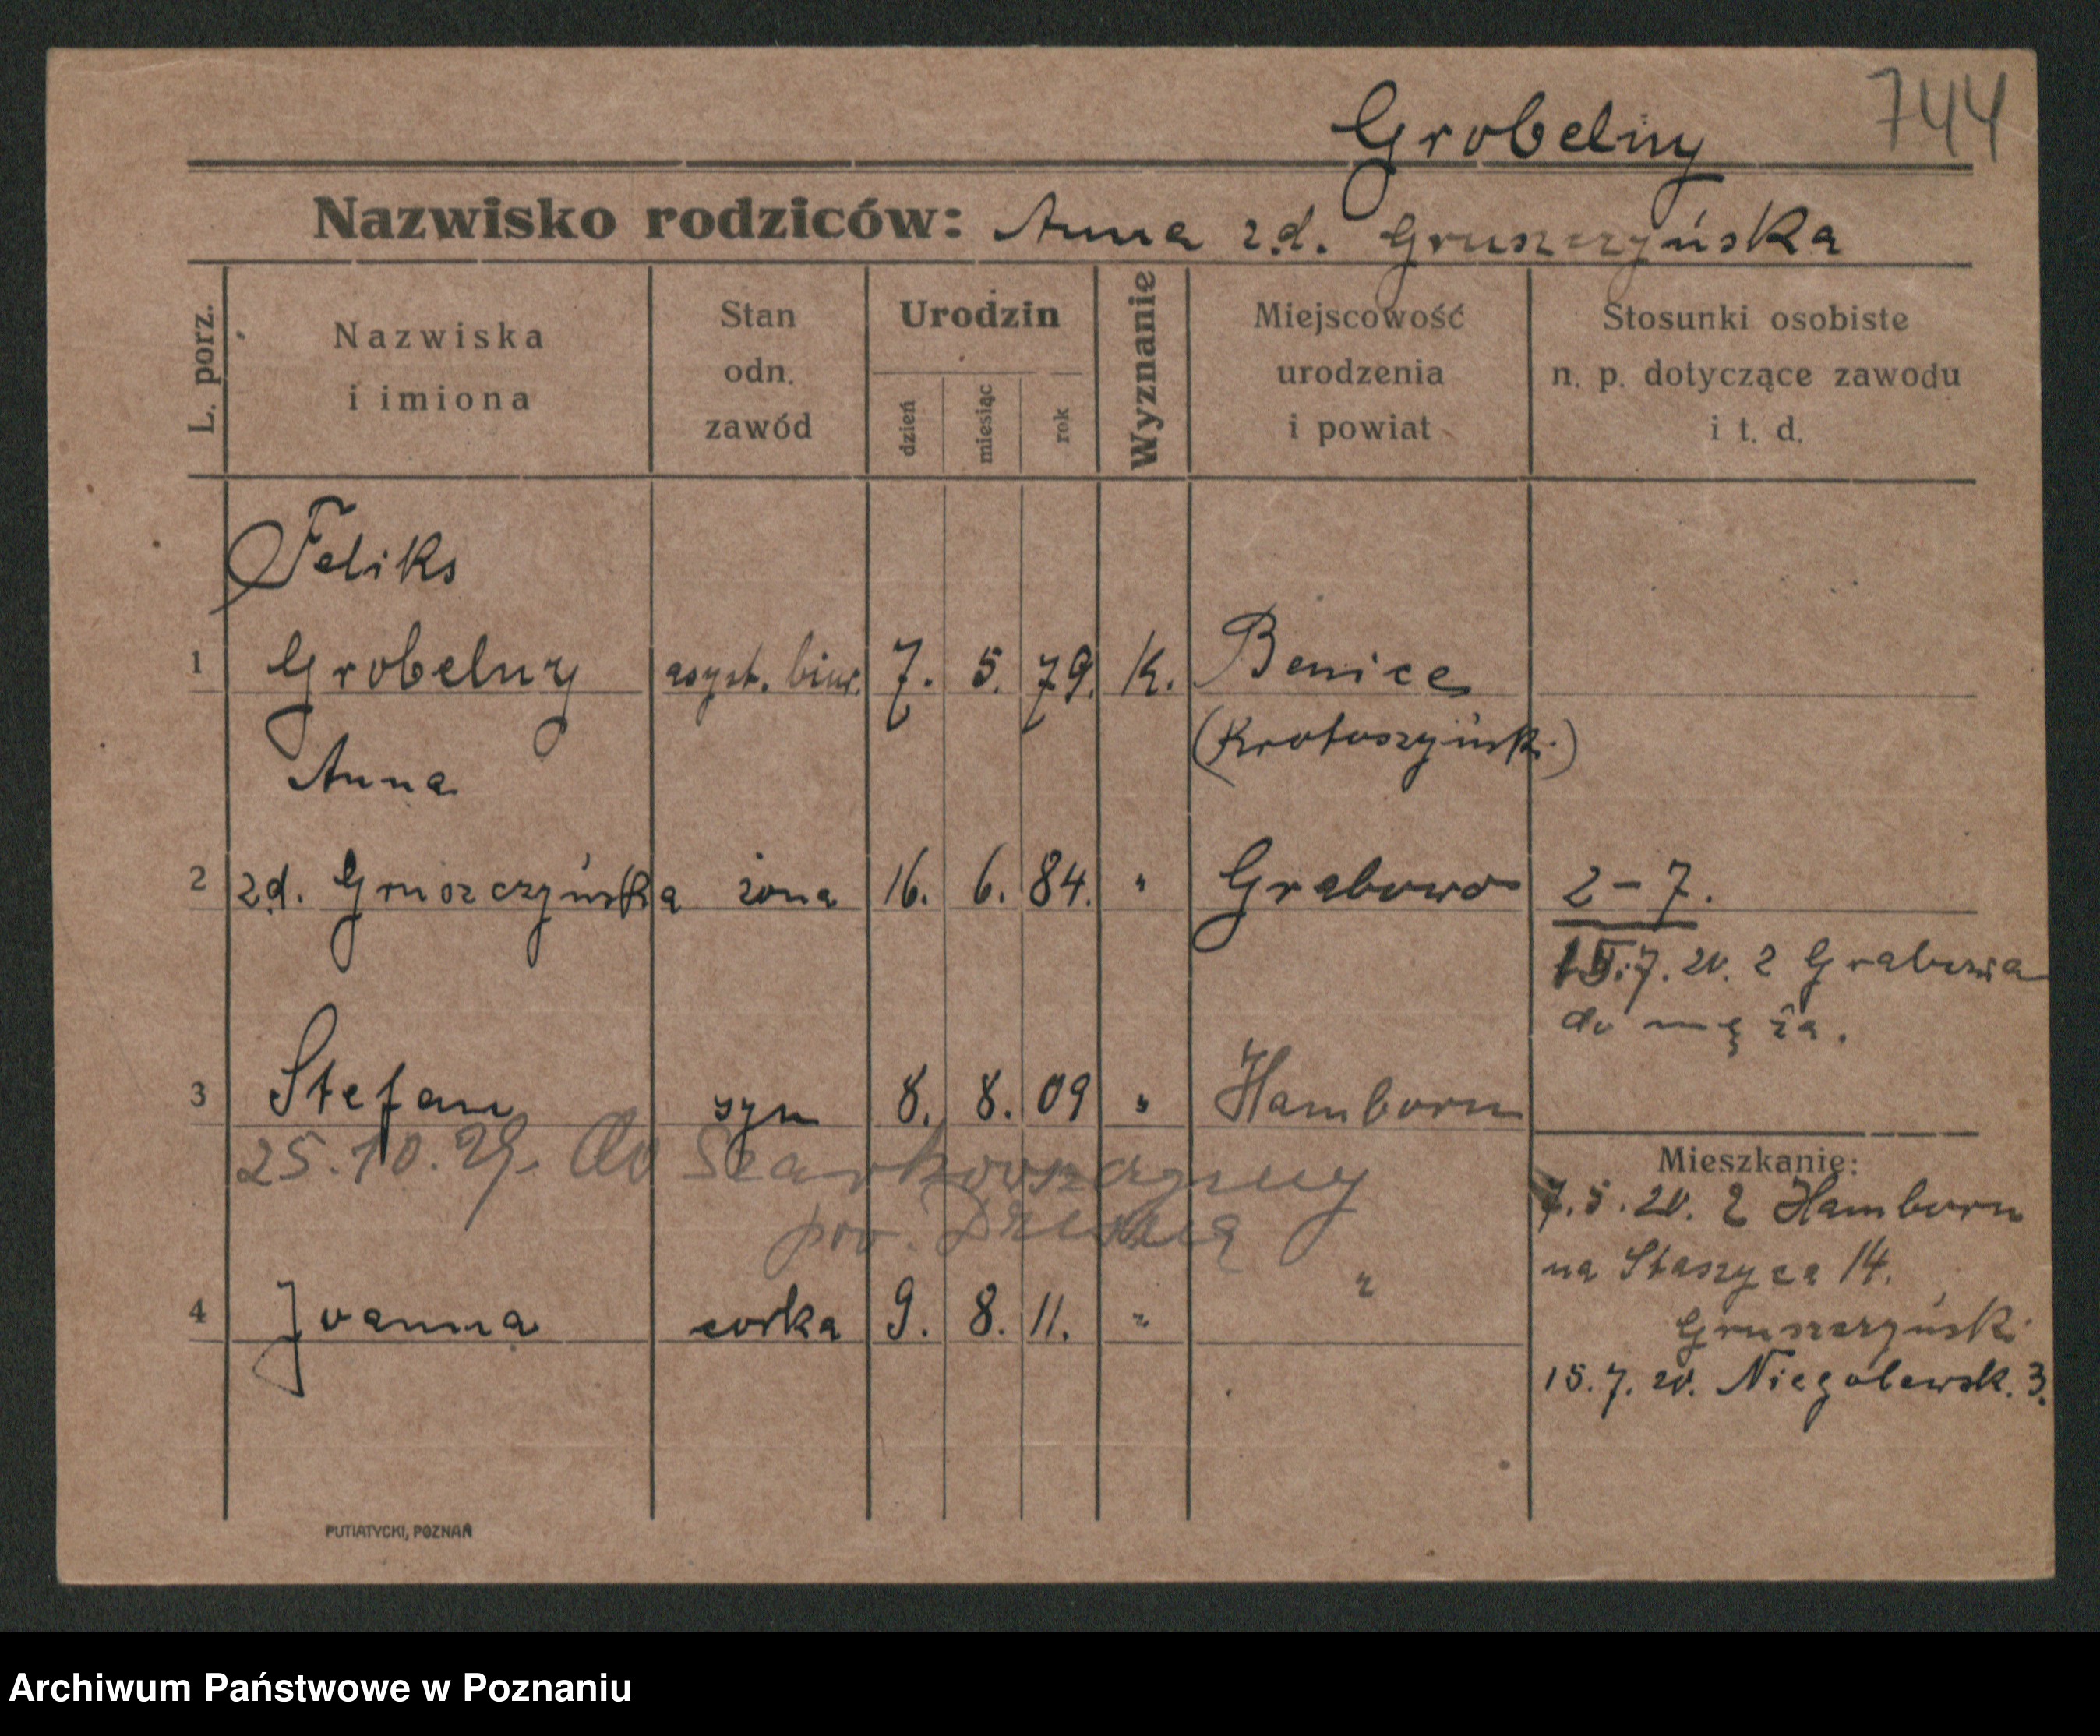 744
Grobelny
Nazwisko rodziców: Anna z d. Gruszczyńska
L. porz.
Nazwiska
i imiona
Stan
odn.
zawód
Urodzin
dzień
miesiąc
rok
Wyznanie
Miejscowość
urodzenia
i powiat
Stosunki osobiste
n. p. dotyczące zawodu
i t. d.
Feliks
1 Grobelny asyst. biur. 7. 5. 79. K. Benice
(Krotoszyńsk.)
Anna
2 z d. Gruszczyńska żona 16. 6. 84. " Grabowo 2-7.
15.7.20. z Grabowa
do męża.
3 Stefan syn 8. 8. 09 " Hamborn
25.10.29. do
pow.
4 Joanna corka 9. 8. 11. " "
Mieszkanie:
7.5.20. z Hamborn
na Staszyca 14.
Gruszczyńsk.
15.7.20. Niegolewsk. 3.
PUTIATYCKI, POZNAŃ
Archiwum Państwowe w Poznaniu